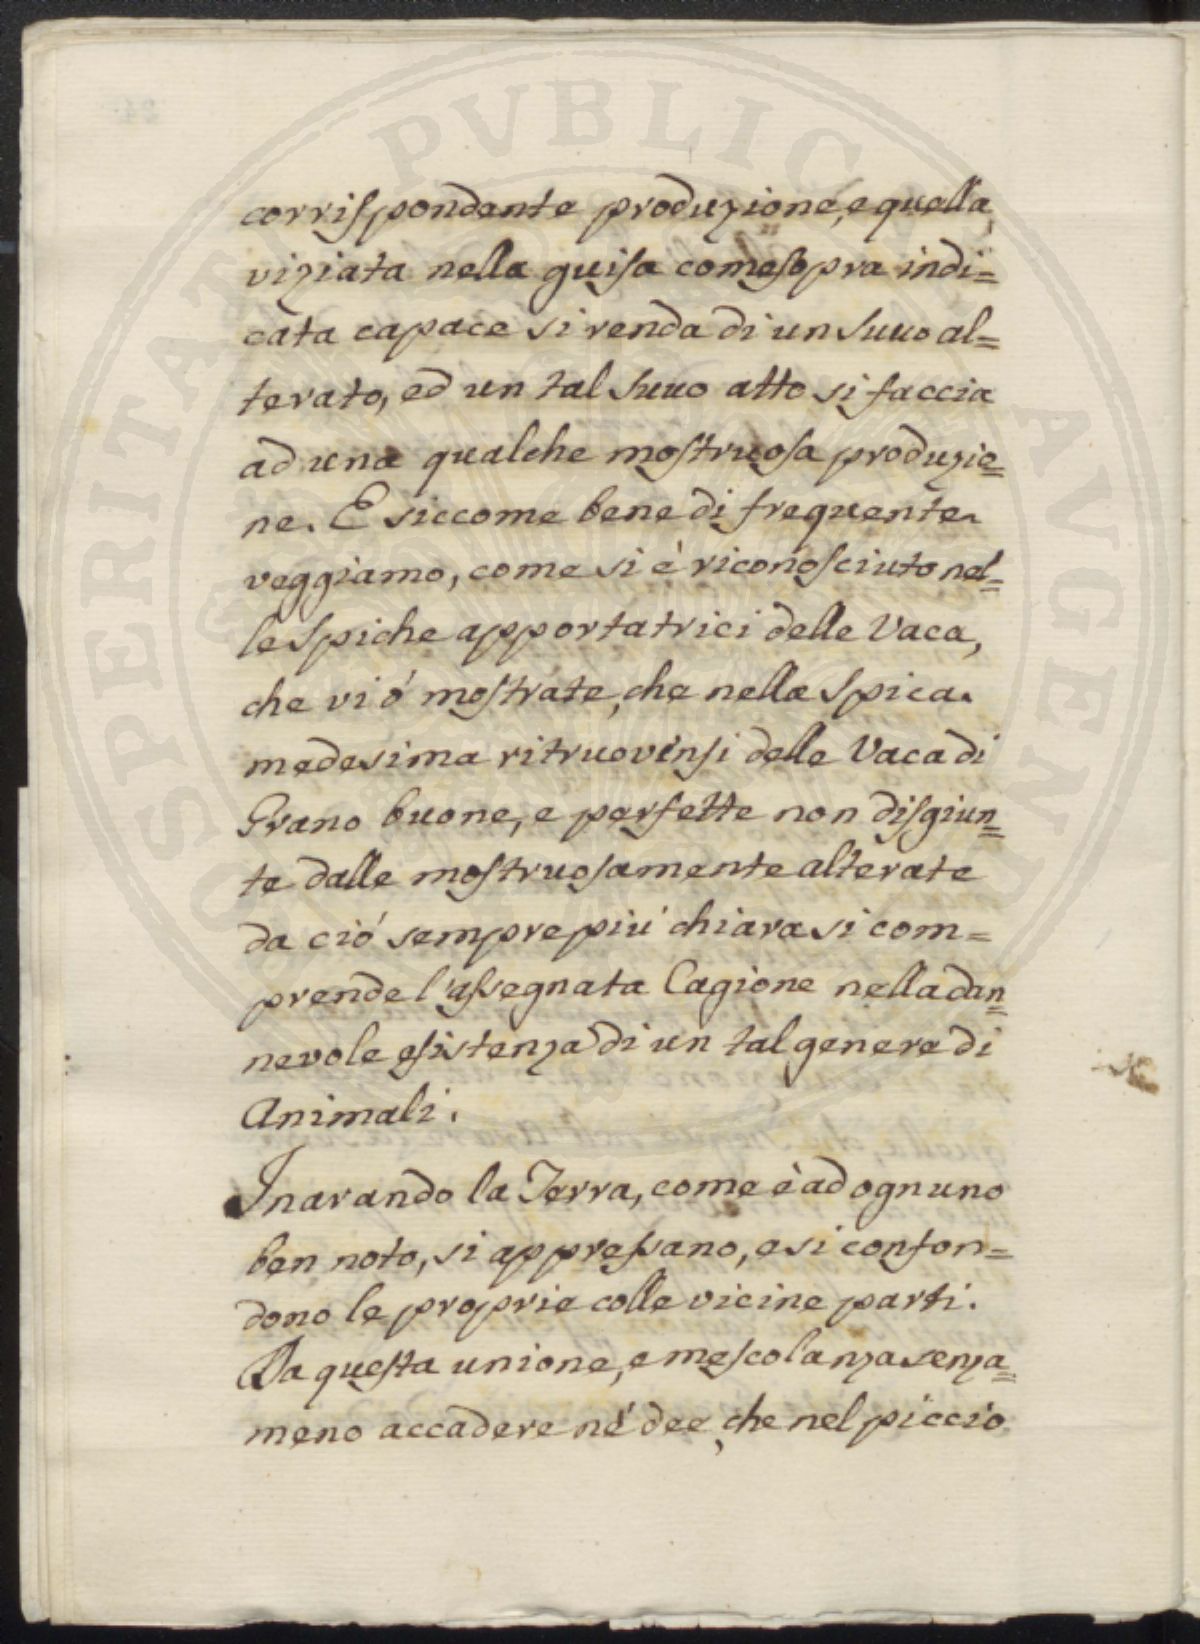 corrispondente produzione, e quella
viziata nella guisa come sopra indi=
cata capace si renda di un suuo al=
terato, ed un tal suuo atto si faccia
ad una qualche mostruosa produzio=
ne. E siccome bene di frequente
veggiamo, come si è riconosciuto nel=
le spiche apportatrici delle Vaca,
che vi ó mostrate, che nella Spica
medesima ritruovinsi delle Vaca di
Grano buone, e perfette non disgiun=
te dalle mostruosamente alterate
da ció sempre piú chiara si com=
prende l'assegnata Cagione nella dan=
nevole esistenza di un tal genere di
Animali.
Inarando la Terra, come è ad ognuno
ben noto, si appressano, e si confon=
dono le proprie colle vicine parti.
Da questa unione, e mescolanza senza=
meno accadere né dee, che nel piccio
SPERITATE PVBLICA AVGENDA